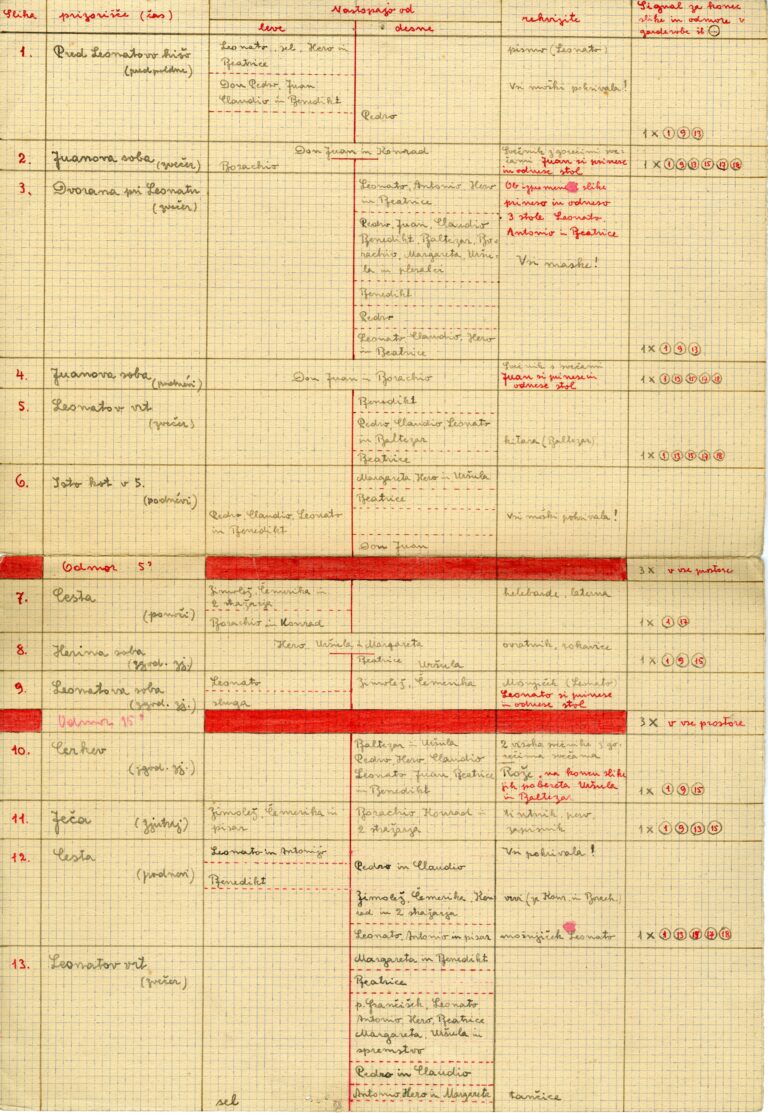 Slika prizorišče (čas) Nastopajo od rekvizite Signal za konec
leve desne slike in odmore v
garderobe št
1. Pred Leonatovo hišo Leonato, sel, Hero in pismo (Leonato)
(predpoldne) Beatrice
Don Pedro, Juan Vsi moški pokrivala!
Claudio in Benedikt
Pedro
1 × 1 9 13
2. Juanova soba (zvečer) Don Juan in Konrad Svečnik z gorečimi sve-
Borachio čami Juan si prinese 1 × 1 9 13 15 17 18
in odnese stol
3. Dvorana pri Leonatu Leonato, Antonio, Hero Ob izpremembi slike
(zvečer) in Beatrice prineso in odneso
Pedro, Juan, Claudio 3 stole Leonato,
Benedikt, Baltezar, Bo- Antonio in Beatrice
rachio, Margareta, Uršu-
la in plesalci Vsi maske!
Benedikt
Pedro
Leonato Claudio, Hero
in Beatrice 1 × 1 9 13
4. Juanova soba (podnevi) Don Juan in Borachio Svečnik s svečami
Juan si prinese in 1 × 1 13 15 17 18
odnese stol
5. Leonatov vrt Benedikt
(zvečer) Pedro, Claudio, Leonato
in Baltezar kitara (Baltezar)
Beatrice 1 × 1 13 15 17 18
6. Isto kot v 5. Margareta Hero in Uršula
(podnevi) Beatrice
Pedro Claudio, Leonato Vsi moški pokrivala!
in Benedikt
Don Juan
Odmor 5' 3 × v vse prostore
7. Cesta Zimolež, Čemerika in helebarde, laterna
(ponoči) 2 stražarja
Borachio in Konrad 1 × 1 17
8. Herina soba Hero, Uršula in Margareta ovratnik, rokavice
(zgod. zj.) Beatrice Uršula 1 × 1 9 15
9. Leonatova soba Leonato Zimolež, Čemerika Mošnjiček (Leonato)
(zgod. zj.) sluga Leonato si prinese
in odnese stol
Odmor 15' 3 × v vse prostore
10. Cerkev Baltezar in Uršula 2 visoka svečnika z go-
(zgod. zj.) Pedro, Hero, Claudio rečima svečama
Leonato Juan Beatrice Rože, na koncu slike
in Benedikt jih pobereta Uršula 1 × 1 9 15
in Baltezar
11. Ječa (zjutraj) Zimolež, Čemerika in Borachio, Konrad in
pisar 2 stražarja zapisnik 1 × 1 9 13 15
12. Cesta Leonato in Antonijo Vsi pokrivala!
(podnevi) Pedro in Claudio
Benedikt
Zimolež, Čemerika, Kon vrvi (za Konr. in Borach.)
rad in 2 stražarja
Leonato, Antonio in pisar mošnjiček Leonato 1 × 1 13 15 17 18
13. Leonatov vrt Margareta in Benedikt
(zvečer) Beatrice
p. Frančišek, Leonato
Antonio Hero, Beatrice
Margareta, Uršula in
spremstvo
Pedro in Claudio
sel Antonio Hero in Margareta tančice